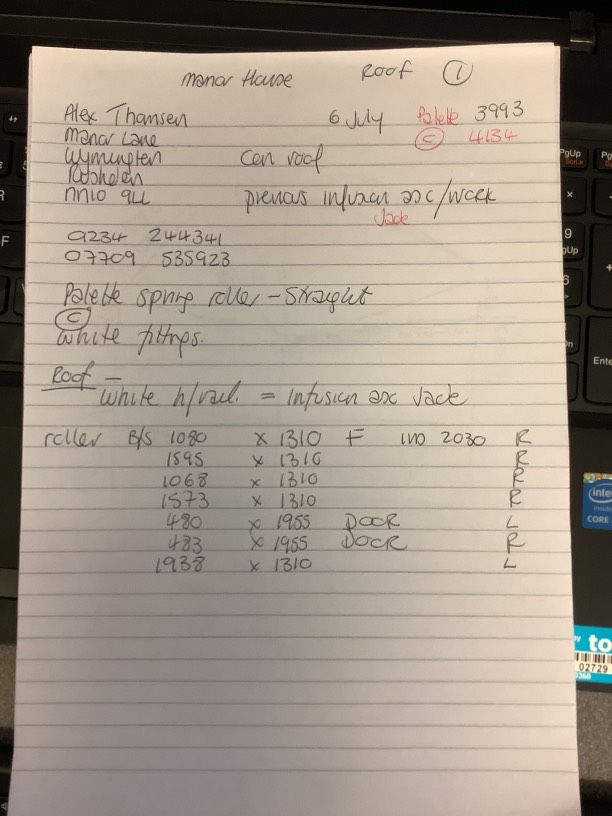 Manor House Roof ①
Alex Thomsen 6 July Palette 3993
Manor Lane © 4134
Wymington Con roof
Rushden
NN10 9LL previous infusion asc/work
Jade
0234 244341
07709 535923
Palette spring roller - straight
©
White fittings.
Roof -
White h/rail. = infusion asc Jade
roller B/S 1080 x 1310 F IND 2030 R
1595 x 1310 R
1068 x 1310 R
1573 x 1310 R
480 x 1955 DOOR L
483 x 1955 DOOR R
1938 x 1310 L
PgUp
9
Ente
intel
CORE
to
02729